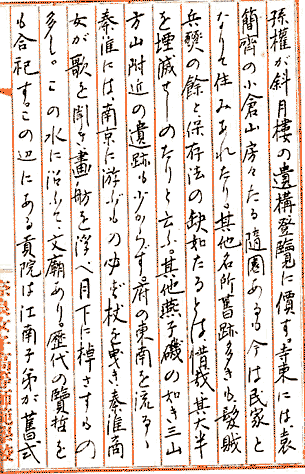 孫權が斜月樓の遺構登臨に價す。寺東には、袁
簡齋の小倉山房たる隨園あるも今は民家と
なりて住みあれたり。其他名所舊跡多きも、髮賊
兵燹の餘と保存法の缺如たるとは、惜哉其大半
を堙滅せしめたりと云ふ。其他燕子磯の如き三山
方山附近の遺跡も少からず。府の東南を流るゝ
秦淮には、南京に游ぶもの必ず杖を曳き秦淮商
女が歌を聞き畫舫を浮べ月下に棹さすもの
多し。この水に沿ふて文廟あり。歴代の賢哲を
も合祀す。この辺にある貢院は江南子弟が舊式